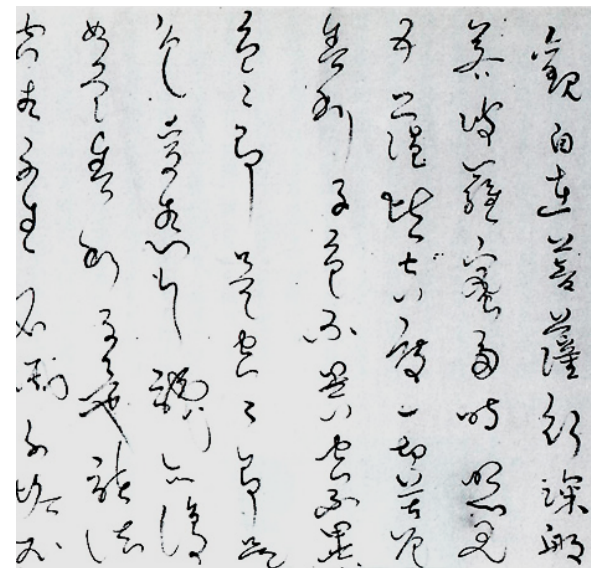 觀自在菩薩行深般
若波羅蜜多時照見
五蘊皆空度一切苦厄
舍利子色不異空〻不異
色〻即是空〻即是
色受想行識亦復
如是舍利子是諸法
空相不生不滅不垢不